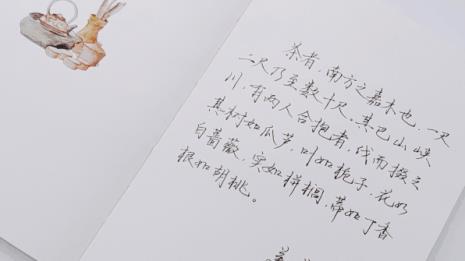 茶者,南方之嘉木也,一尺
二尺乃至数十尺。其巴山峡
川,有两人合抱者,伐而掇之
其树如瓜芦,叶如栀子,花如
白蔷薇,实如栟榈,蒂如丁香
根如胡桃。